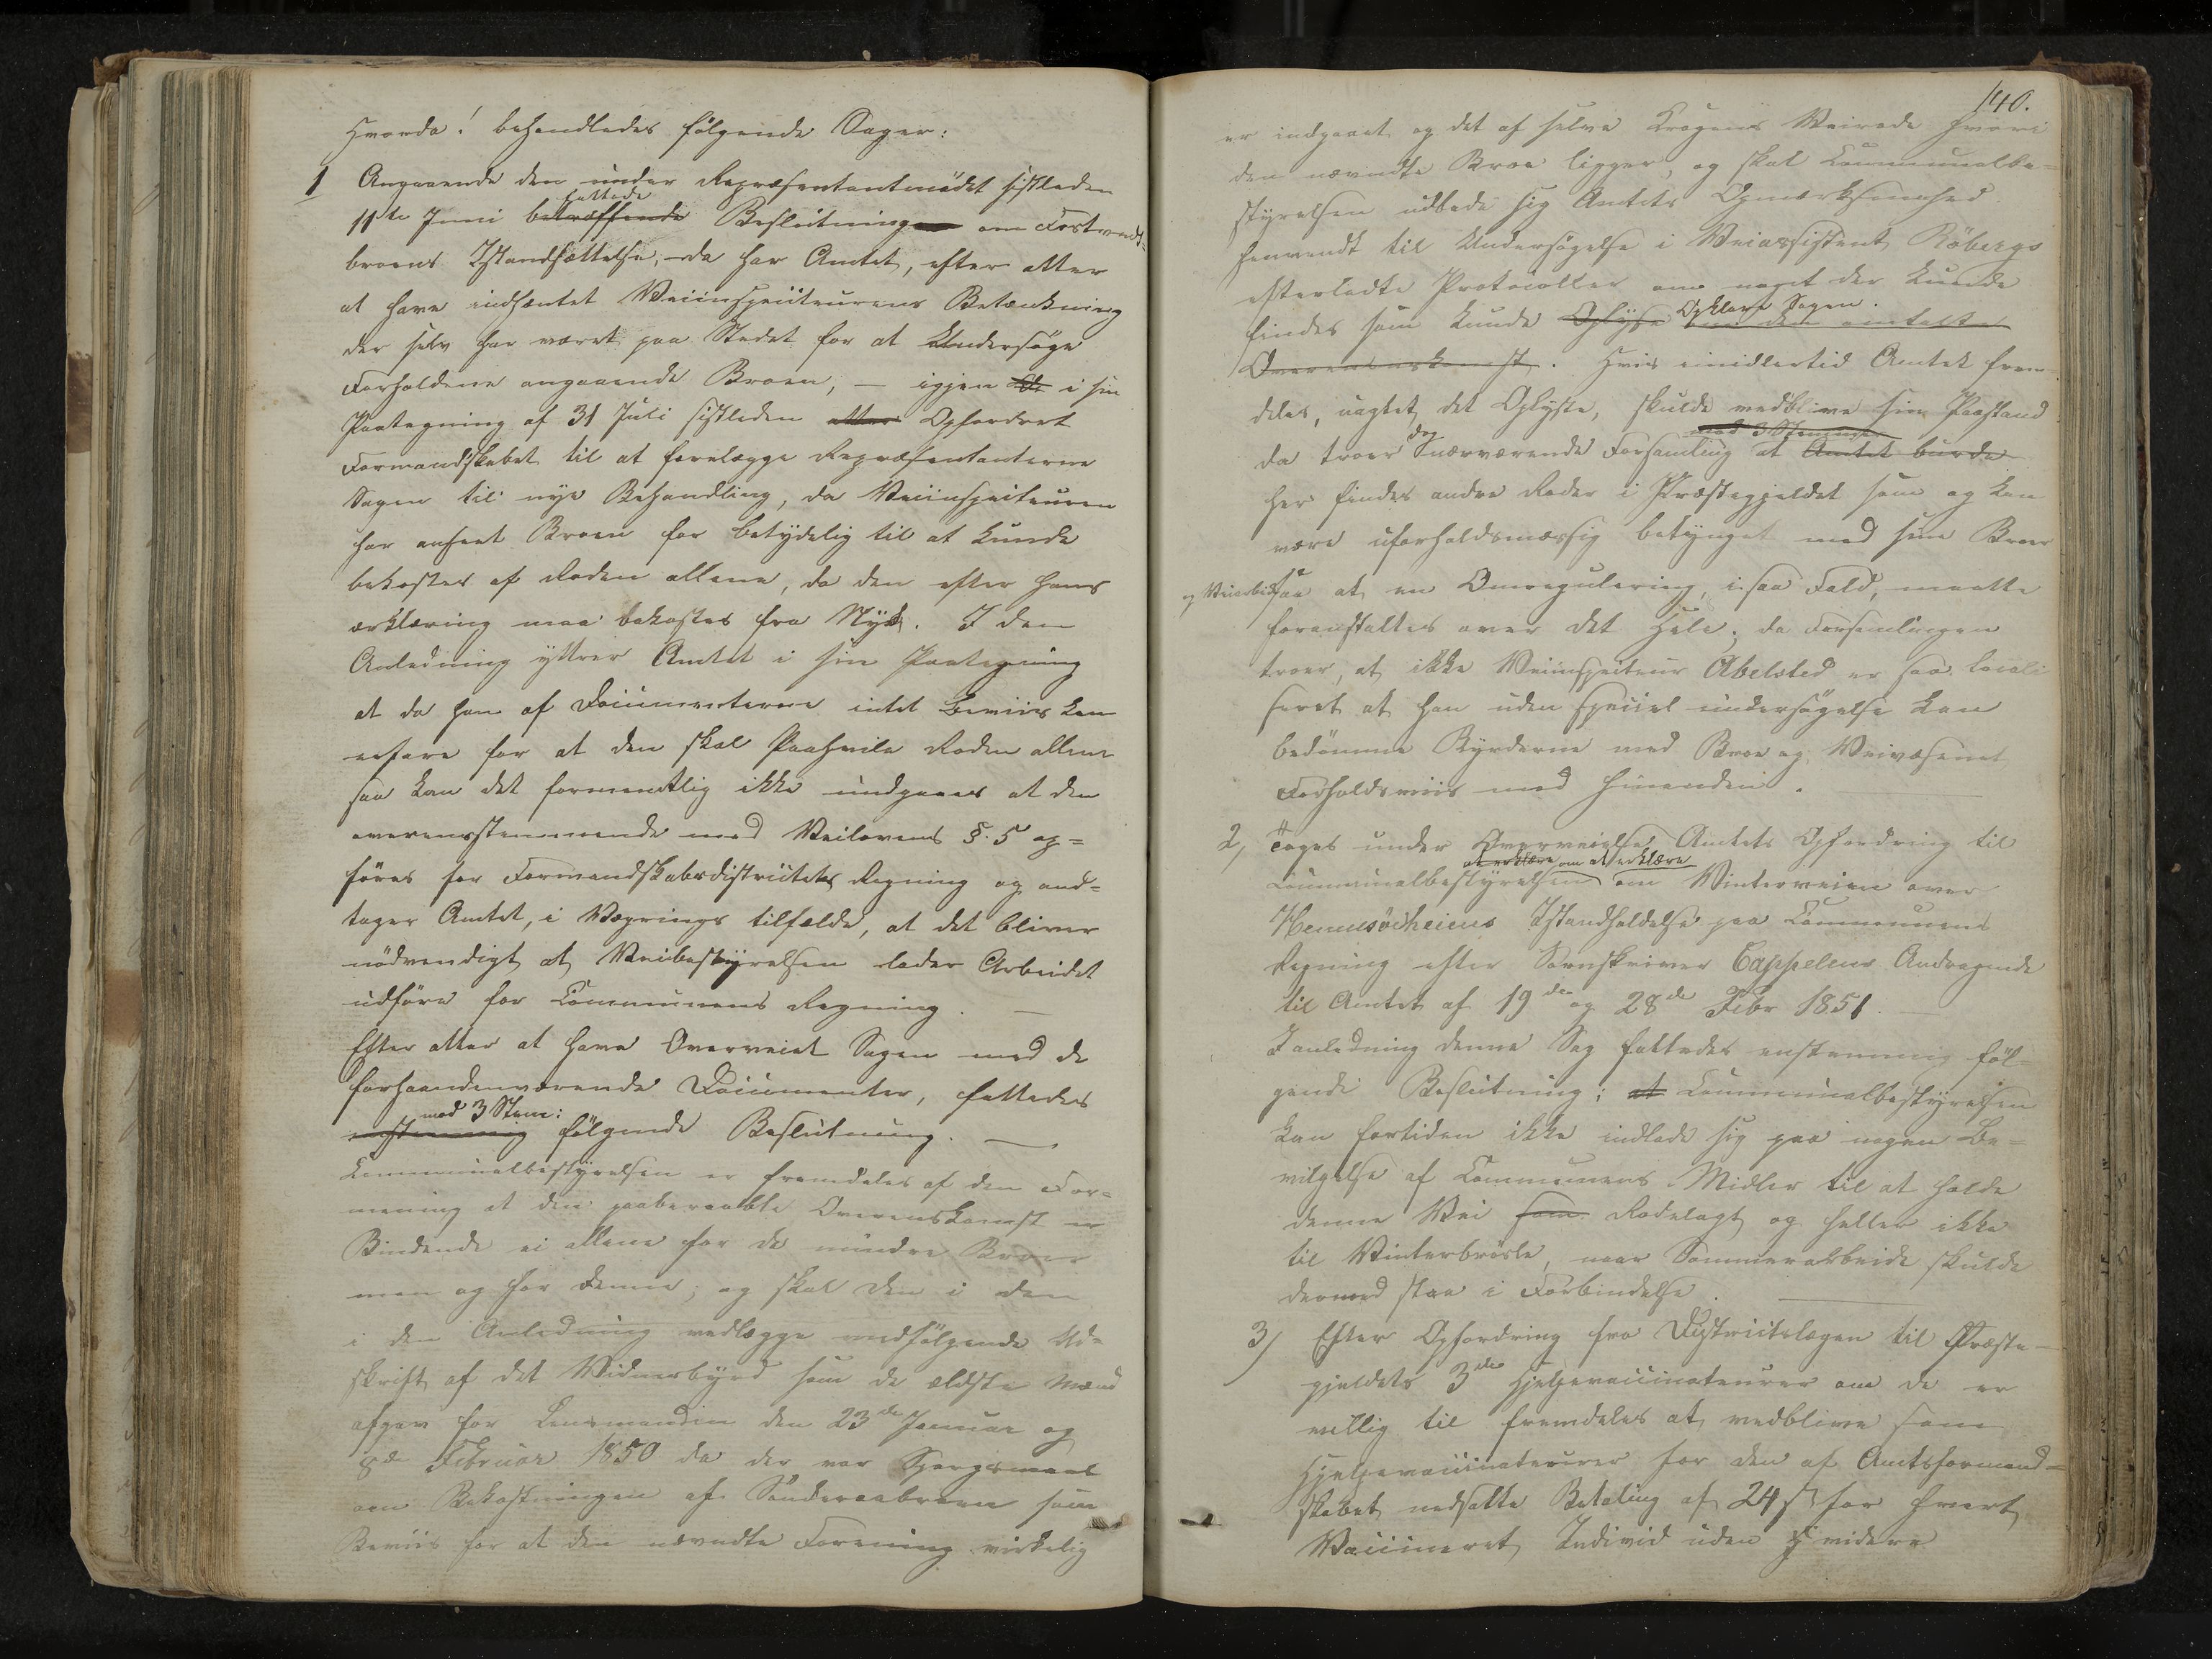 Hvorda! behandledes følgende Sager:
1 Angaaende den under Repræsentantmødet sistleden
11te Juni betræffende fattede Beslutning om Fostvedt-
broens Istandsættelse, da har Amtet, efter atter
at have indhæntet Veiinspecteurens Betænkning
der selv har været paa Stedet for at Undersøge
Forholdene angaaende Broen, — igjen i sin
Paategning af 31 Juli sistleden atter Opfordret
Formandskabet til at forelægge Repræsentanterne
Sagen til nye Behandling, da Veiinspecteuren
har anseet Broen for betydelig til at kunde
bekostes af Roden allene, da den efter hans
erklæring maa bekostes fra Nyt. I den
Anledning yttrer Amtet i sin Paategning
at da han af Documenterne intet Beviis kan
erfare for at den skal Paahvile Roden allene
saa kan det formentlig ikke undgaaes at den
overensstemmende med Veilovens §. 5 op-
føres for Formandskabsdistrictets Regning og and-
tager Amtet, i Vægrings tilfælde, at det bliver
nødvendigt at Veibestyrelsen lader Arbeidet
udføre for Communens Regning. —
Efter atter at have Overveiet Sagen med de
forhaandenværende Documenter, fattedes
enstemmig med 3 Stem: følgende Beslutning. —
Communalbestyrelsen er fremdeles af den For-
mening at den paaberaabte Overenskomst er
Bindende ei allene for de mindre Broer
men og for Denne, og skal den i den
i den Anledning vedlægge medfølgende Ud-
skrift af det Vidnesbyrd som de ældste Mænd
afgav for Lensmanden den 23de Januar og
8de Februar 1850 da der var Spørgsmaal
om Bekostningen af Sönderaabroen som
Beviis for at den nævndte Forening virkelig
140.
er indgaaet og det af selve Krogens Veirode hvori
den nævndte Broe ligger, og skal Communalbe-
styrelsen udbede sig Amtets Opmærksomhed
henvendt til Undersøgelse i Veiassistent Röbergs
efterladte Protocoller om noget der kunde
findes som kunde Oplyse Opklare Sagen. om den omtalte
Overenskomst. Hvis imidlertid Amtet frem-
deles, uagtet det Oplyste, skulde vedblive sin Paastand
da troer dog Nærværende Forsamling med 3 Stemmer at Amtet burde
her findes andre Roder i Præstegjeldet som og kan
være uforholdsmæssig betynget med sine Broer
og Veiarbeide saa at en Omregulering, i saa Fald, maatte
foranstaltes over det Hele; da Forsamlingen
troer, at ikke Veiinspecteur Abelsted er saa locali
seret at han uden speciel undersøgelse kan
bedømme Byrderne med Broe og Veivæsenet
Forholdsviis med hinanden.
2, Toges under Overveielse Amtets Opfordring til
Communalbestyrelsen at erklære om at erklære om Vinterveien over
Hennesöeheiens Istandholdelse paa Communens
Regning efter Sorenskriver Cappelens Andragende
til Amtet af 19de og 28de Febr 1851. —
I anledning denne Sag fattedes enstemmig föl-
gende Beslutning: at Communalbestyrelsen
kan fortiden ikke indlade sig paa nogen Be-
vilgelse af Communens Midler til at holde
denne Vei som Rodelagt og heller ikke
til Vinterbröite, naar Sommerarbeide skulde
dermed staa i Forbindelse.
3) Efter Opfordring fra Districtslægen til Præste-
gjeldets 3de Hjelpevaccinateurer om de er
villig til fremdeles at vedblive som
Hjelpevaccinateurer for den af Amtsformand-
skabet nedsatte Betaling af 24 s for hvert
Vaccineret Individ uden videre